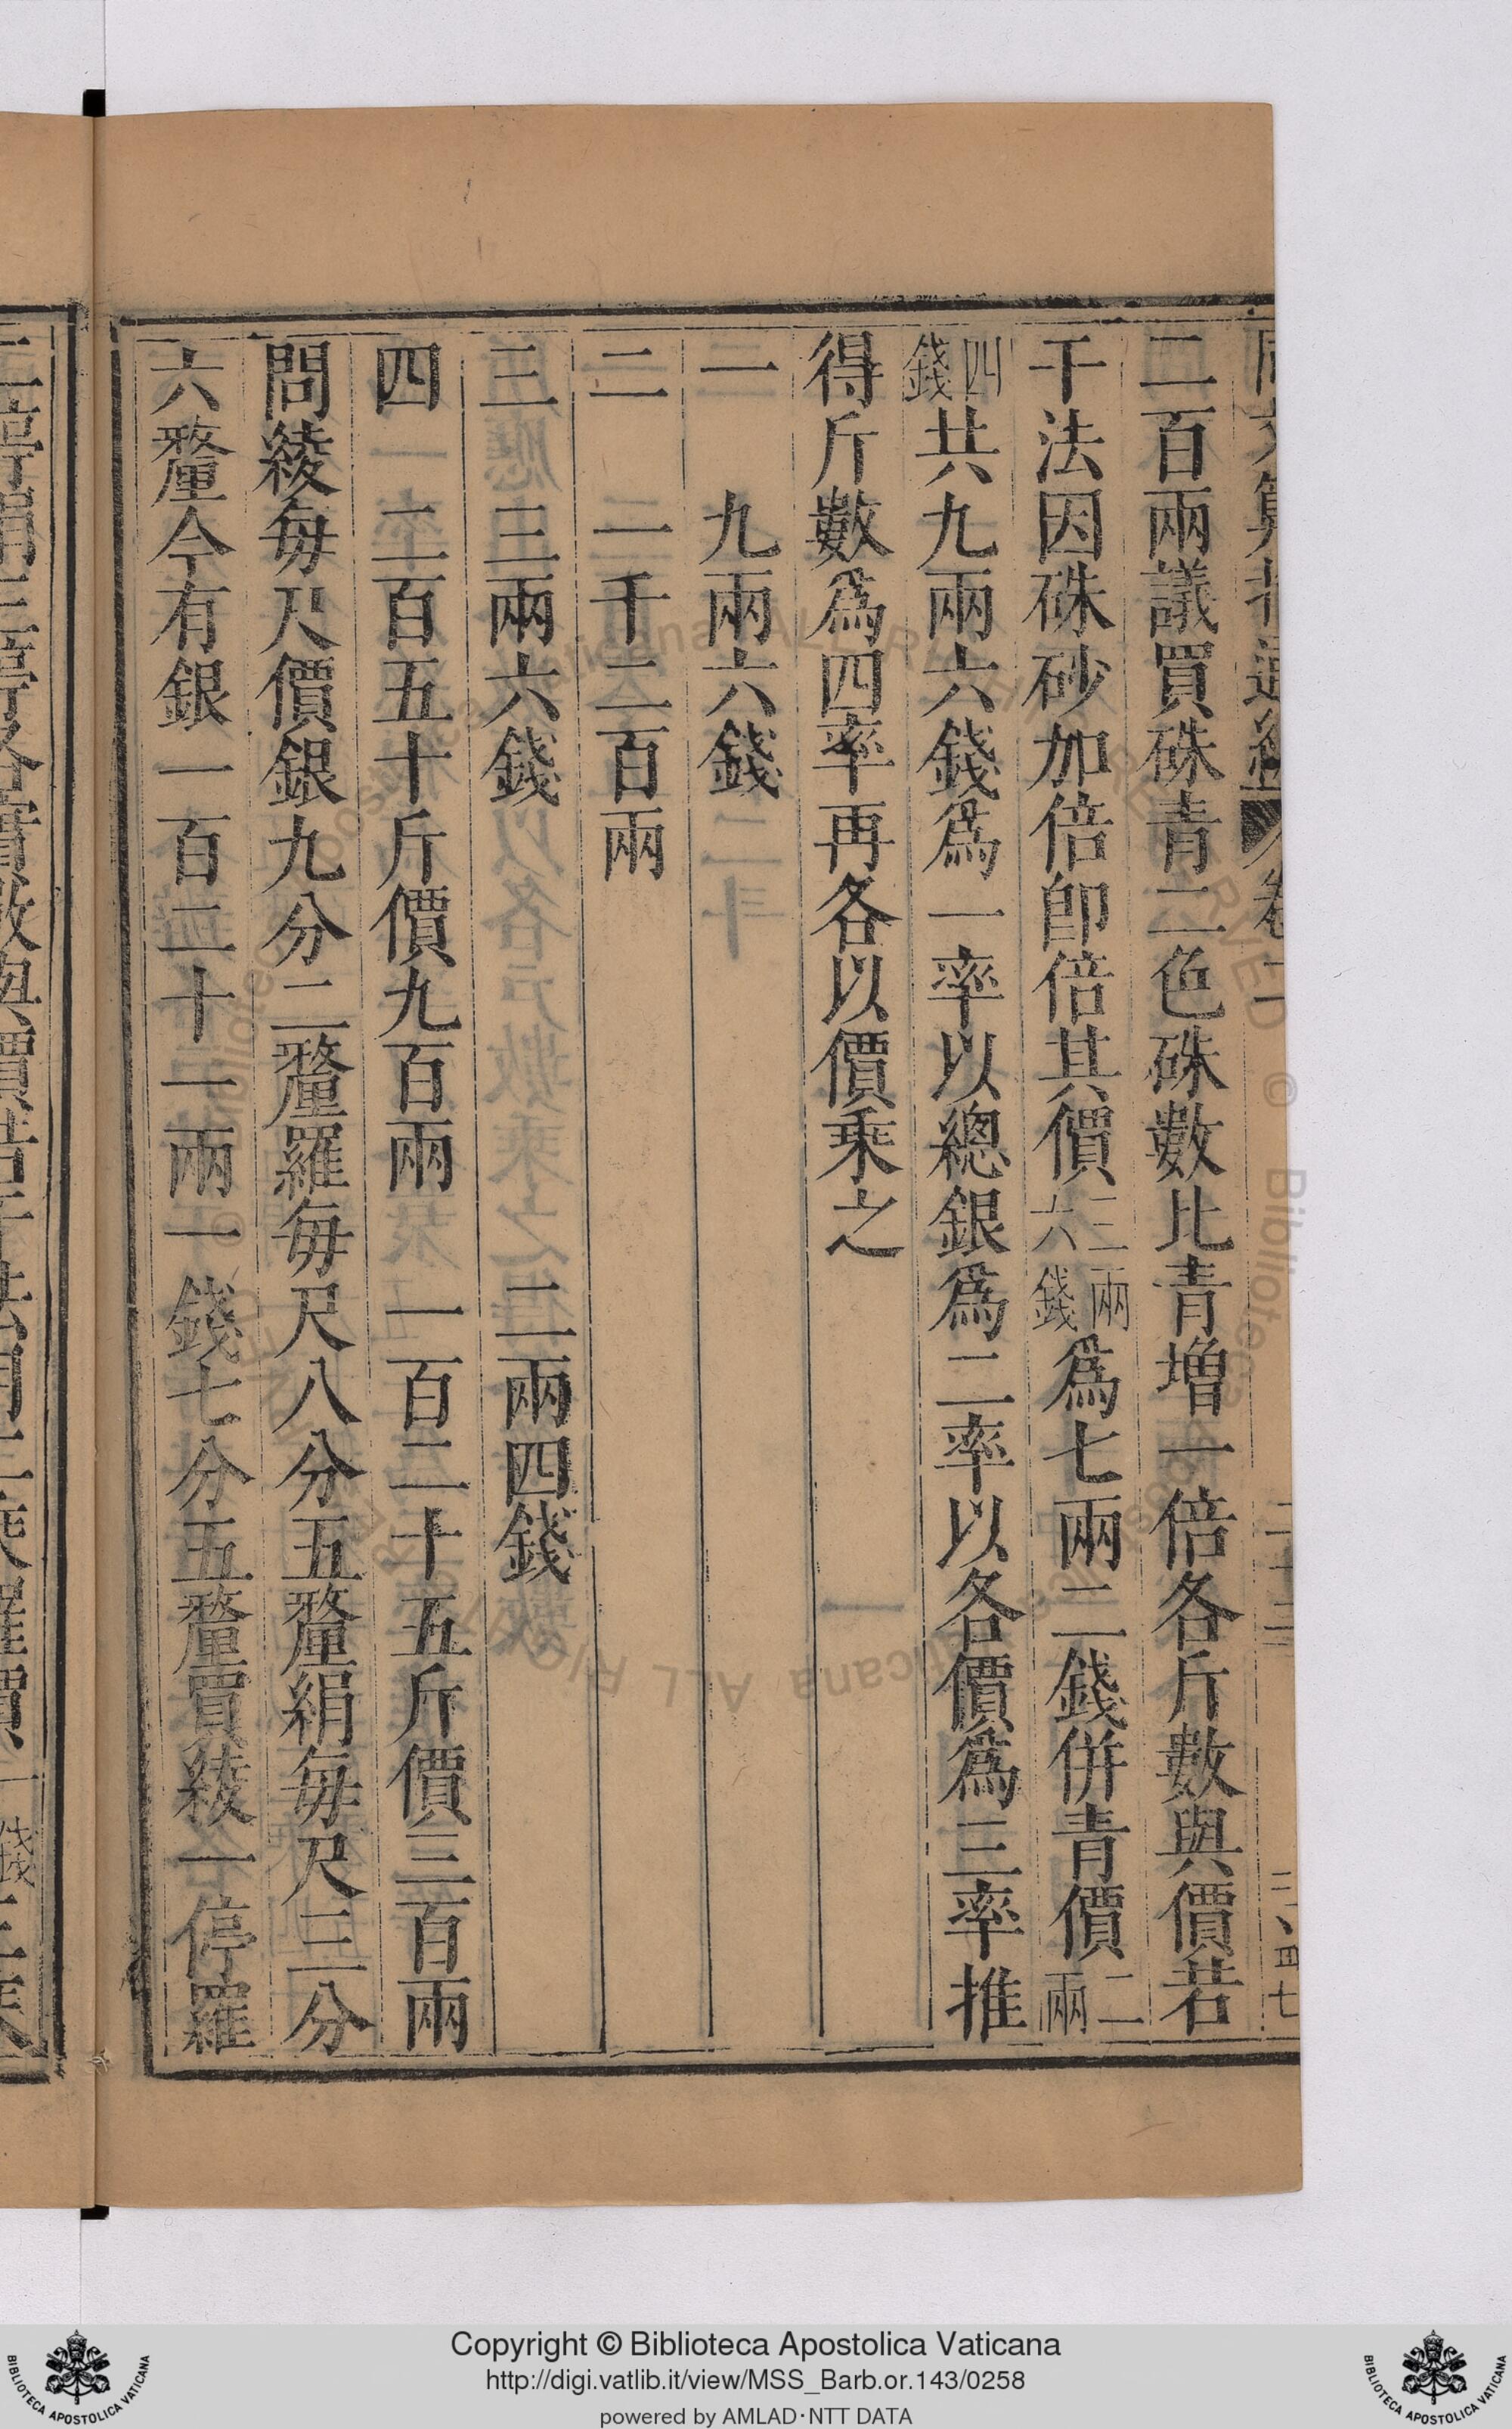 二百兩議買硃青二色硃數比青增一倍各斤數與價若
干法因硃砂加倍卽倍其價三兩六錢爲七兩二錢併青價二兩
四錢共九兩六錢爲一率以總銀爲二率以各價爲三率推
得斤數爲四率再各以價乘之
一 九兩六錢
二 一千二百兩
三 三兩六錢 二兩四錢
四 二百五十斤價九百兩 一百二十五斤價三百兩
問綾每尺價銀九分二釐羅每尺八分五釐絹每尺三分
六釐今有銀一百二十一兩一錢七分五釐買綾一停羅
Copyright © Biblioteca Apostolica Vaticana
http://digi.vatlib.it/view/MSS_Barb.or.143/0258
powered by AMLAD·NTT DATA
BIBLIOTECA APOSTOLICA VATICANA
BIBLIOTECA APOSTOLICA VATICANA